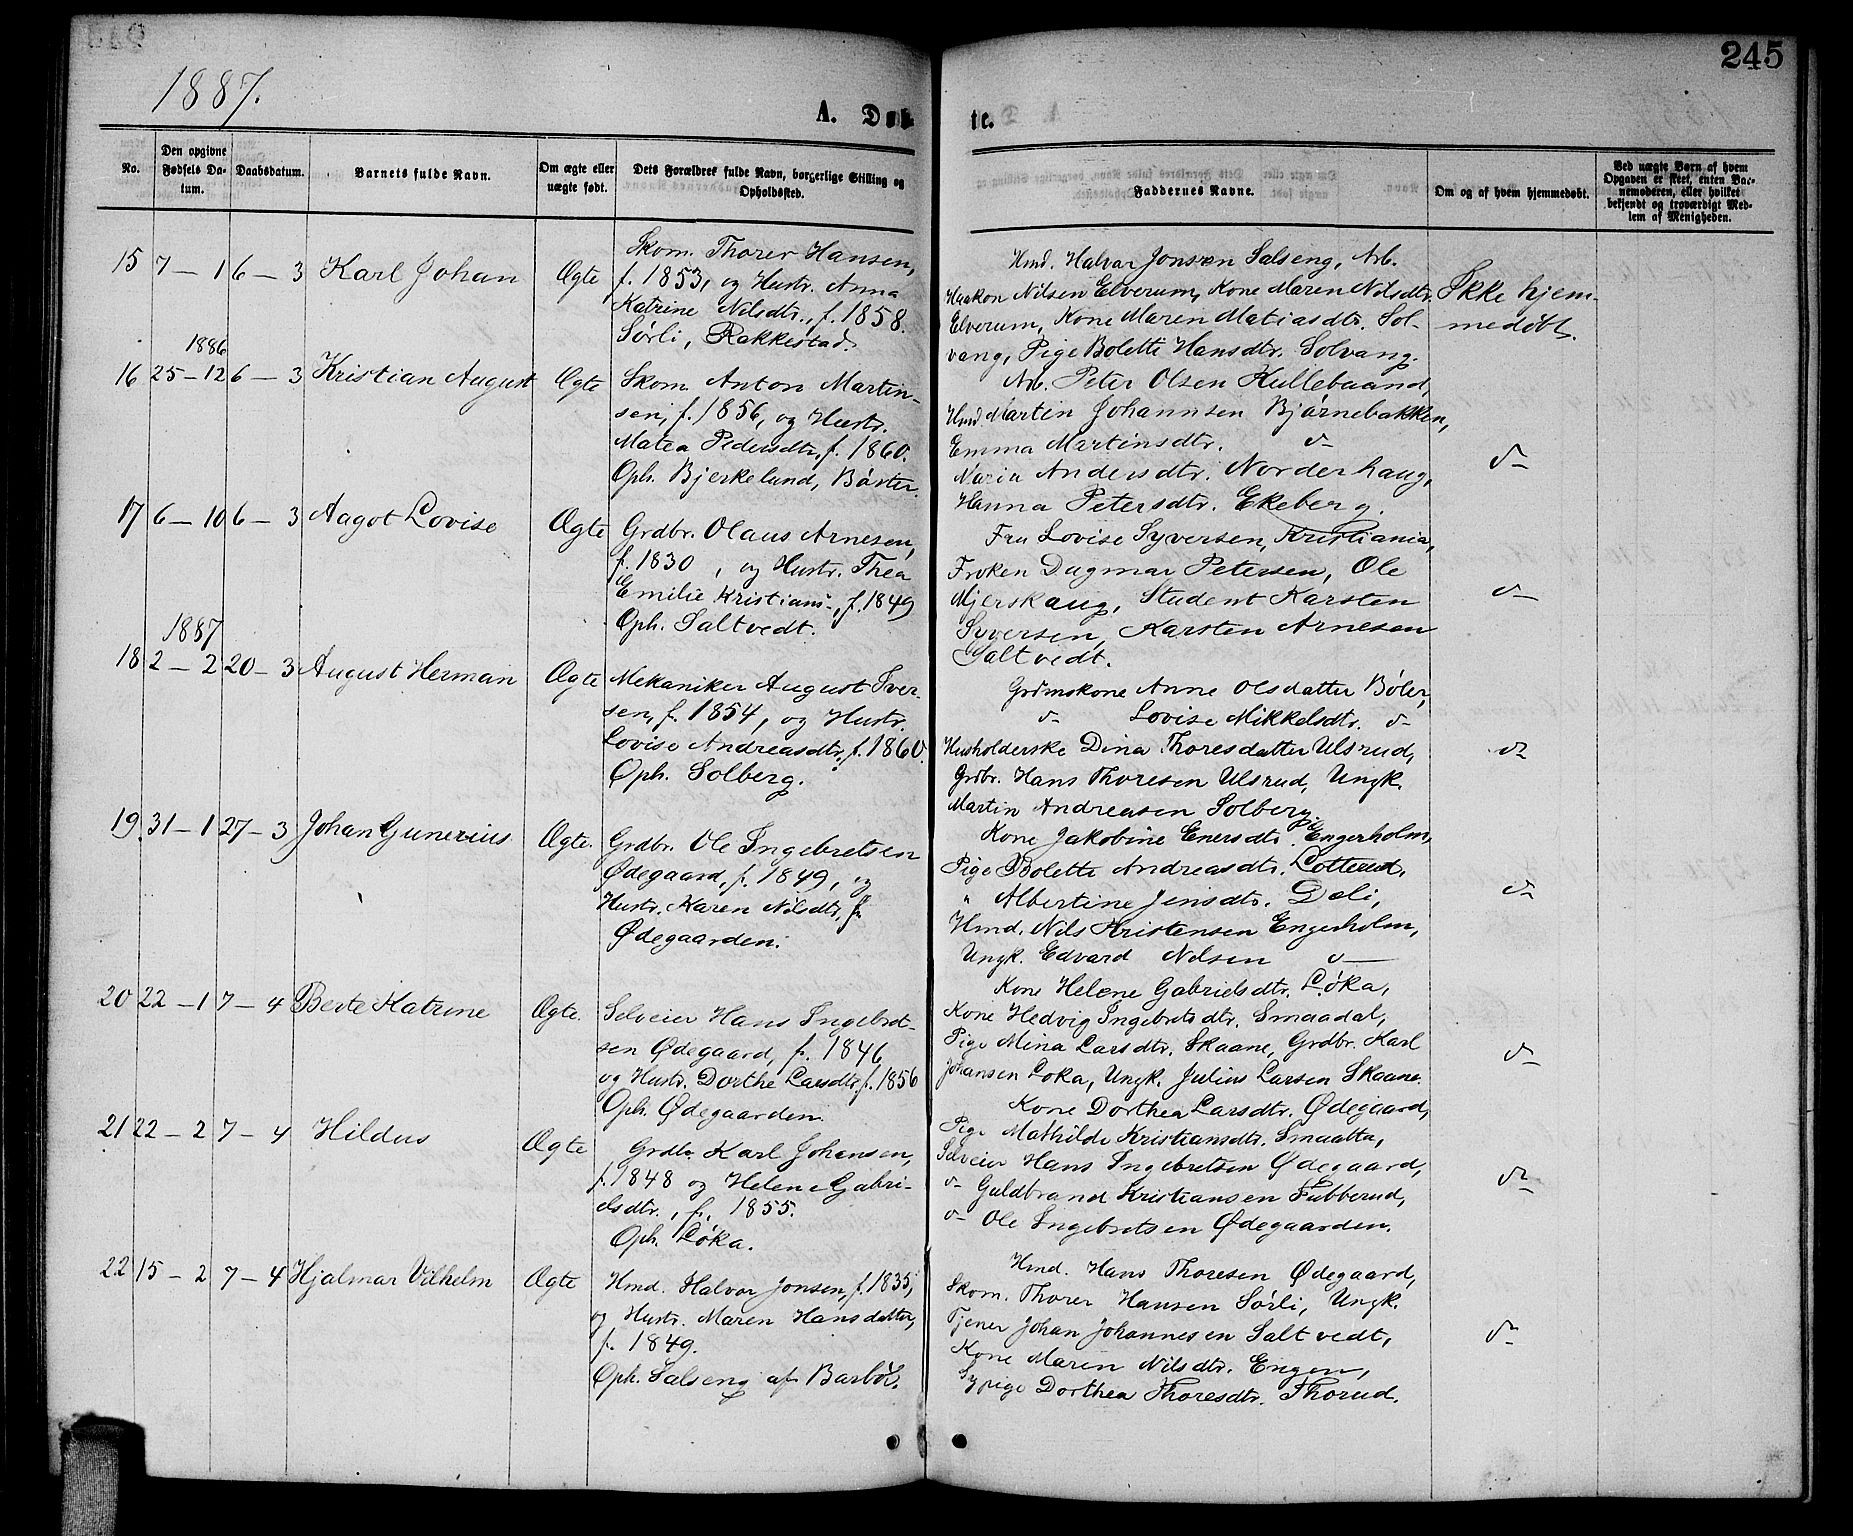 1887.
245
A. Døbte.
No.
Den opgivne Fødsels Datum.
Daabsdatum.
Barnets fulde Navn.
Om ægte eller uægte født.
Dets Forældres fulde Navn, borgerlige Stilling og Opholdssted.
Faddernes Navne.
Om og af hvem hjemmedøbt.
Ved uægte Børn af hvem Opgaven er skeet, enten Barnemoderen, eller hvilket bekjendt og troværdigt Medlem af Menigheden.
15 7 – 1 6 – 3 Karl Johan Ægte
Skom. Thorer Hansen,
f. 1853, og Hustr. Anna
Katrine Nilsdtr., f. 1858.
Sørli, Rakkestad.
Hmd. Halvar Jonsen Salseng, Arb.
Haakon Nilsen Elverum, Kone Maren Nilsdtr.
Elverum, Kone Maren Matiasdtr. Sol-
vang, Pige Bolette Hansdtr. Solvang.
Ikke hjem-
medøbt.
1886
16 25 – 12 6 – 3 Kristian August Ægte
Skom. Anton Martin-
sen, f. 1856, og Hustr.
Matea Pedersdtr., f. 1860.
Oph. Bjerkelund, Børter.
Arb. Peter Olsen Kullebaand,
Hmd. Martin Johannsen Bjørnebakken,
Emma Martinsdtr. d-
Maria Andersdtr. Norderhaug,
Hanna Petersdtr. Ekeberg.
d-
17 6 – 10 6 – 3 Aagot Lovise Ægte
Grdbr. Olaus Arnesen,
f. 1830, og Hustr. Thea
Emilie Kristians-, f. 1849
Oph. Saltvedt.
Fru Lovise Syversen, Kristiania,
Frøken Dagmar Petersen, Ole
Mjerskaug, Student Karsten
Syversen, Karsten Arnesen
Saltvedt.
d-
1887
18 2 – 2 20 – 3 August Herman Ægte
Mekaniker August Iver-
sen, f. 1854, og Hustr.
Lovise Andreasdtr., f. 1860.
Oph. Solberg.
Grdmskone Anne Olsdatter Bøler,
d- Lovise Mikkelsdtr. d-
Husholderske Dina Thoresdatter Ulsrud,
Grdbr. Hans Thoresen Ulsrud, Ungk.
Martin Andreasen Solberg.
d-
19. 31 – 1 27 – 3 Johan Gunerius Ægte.
Grdbr. Ole Ingebretsen
Ødegaard, f. 1849, og
Hustr. Karen Nilsdtr, f.
Ødegaarden.
Kone Jakobine Enersdtr. Engerholm,
Pige Bolette Andreasdtr. Lotterud,
" Albertine Jensdtr. Dali,
Hmd. Nils Kristensen Engerholm,
Ungk. Edvard Nilsen d-
d-
20 22 – 1 7 – 4 Berte Katrine Ægte.
Selveier Hans Ingebret-
sen Ødegaard, f. 1846
og Hustr. Dorthe Larsdtr. f. 1856
Oph. Ødegaarden.
Kone Helene Gabrielsdtr. Løka,
Kone Hedvig Ingebretsdtr. Smaadal,
Pige Mina Larsdtr. Skaane, Grdbr. Karl
Johansen Løka, Ungk. Julius Larsen Skaane.
d-
21 22 – 2 7 – 4 Hildus Ægte
Grdbr. Karl Johansen,
f. 1848 og Helene Gabri-
elsdtr., f. 1855.
Oph. Løka.
Kone Dorthea Larsdtr. Ødegaard,
Pige Mathilde Kristiansdtr. Smaatta,
Selveier Hans Ingebretsen Ødegaard,
d- Guldbrand Kristiansen Tubberud,
d- Ole Ingebretsen Ødegaarden.
d-
22 15 – 2 7 – 4 Hjalmar Vilhelm Ægte
Hmd. Halvor Jonsen, f. 1835,
og Hustr. Maren Hansdatter,
f. 1849.
Oph. Salseng af Barbøl.
Hmd. Hans Thoresen Ødegaard,
Skom. Thorer Hansen Sørli, Ungk.
Tjener Johan Johannesen Saltvedt,
Kone Maren Nilsdtr. Engen,
Sypige Dorthea Thoresdtr. Thorud.
d-